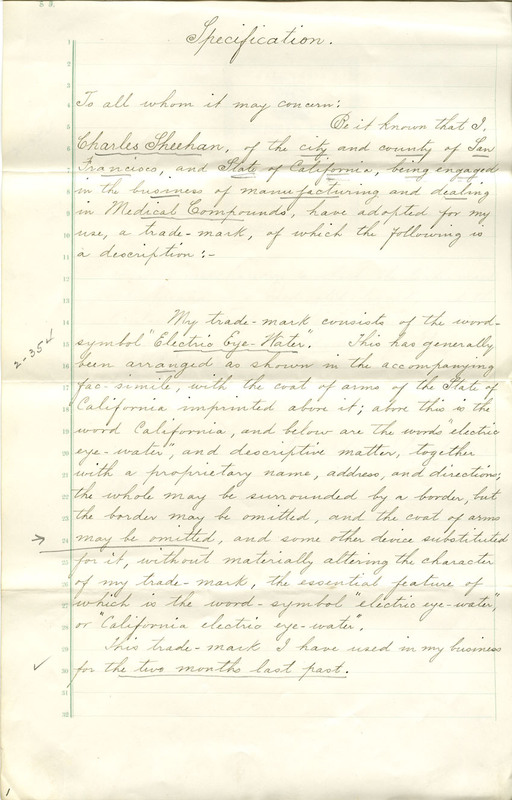 Specification.
To all whom it may concern:
Be it known that I,
Charles Sheehan, of the city and county of San
Francisco, and State of California, being engaged
in the business of manufacturing and dealing
in Medical Compounds, have adopted for my
use, a trade-mark, of which the following is
a description:-
My trade-mark consists of the word-
symbol "Electric Eye-Water". This has generally
been arranged as shown in the accompanying
fac-simile, with the coat of arms of the State of
California imprinted above it; above this is the
word California, and below are the words "electric
eye-water", and descriptive matter, together
with a proprietary name, address, and directions;
the whole may be surrounded by a border, but
the border may be omitted, and the coat of arms
may be omitted, and some other device substituted
for it, without materially altering the character
of my trade-mark, the essential feature of
which is the word-symbol "electric eye-water",
or "California electric eye-water".
This trade-mark I have used in my business
for the two months last past.
2-354
1